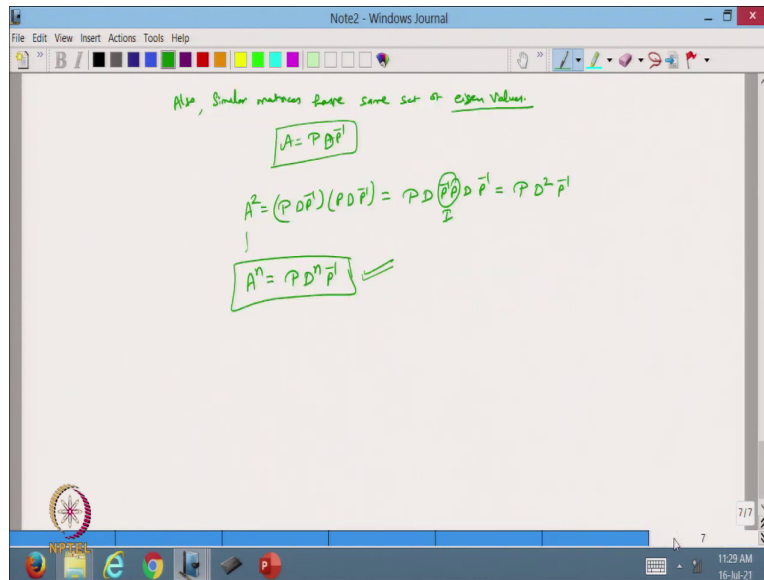 Note2 - Windows Journal
File Edit View Insert Actions Tools Help
Also, Similar matrices have same set of eigen values.
A = P D P⁻¹
A² = (P D P⁻¹)(P D P⁻¹) = P D P⁻¹P D P⁻¹ = P D² P⁻¹
I
Aⁿ = P Dⁿ P⁻¹
7/7
7
NPTEL
11:29 AM
16-Jul-21